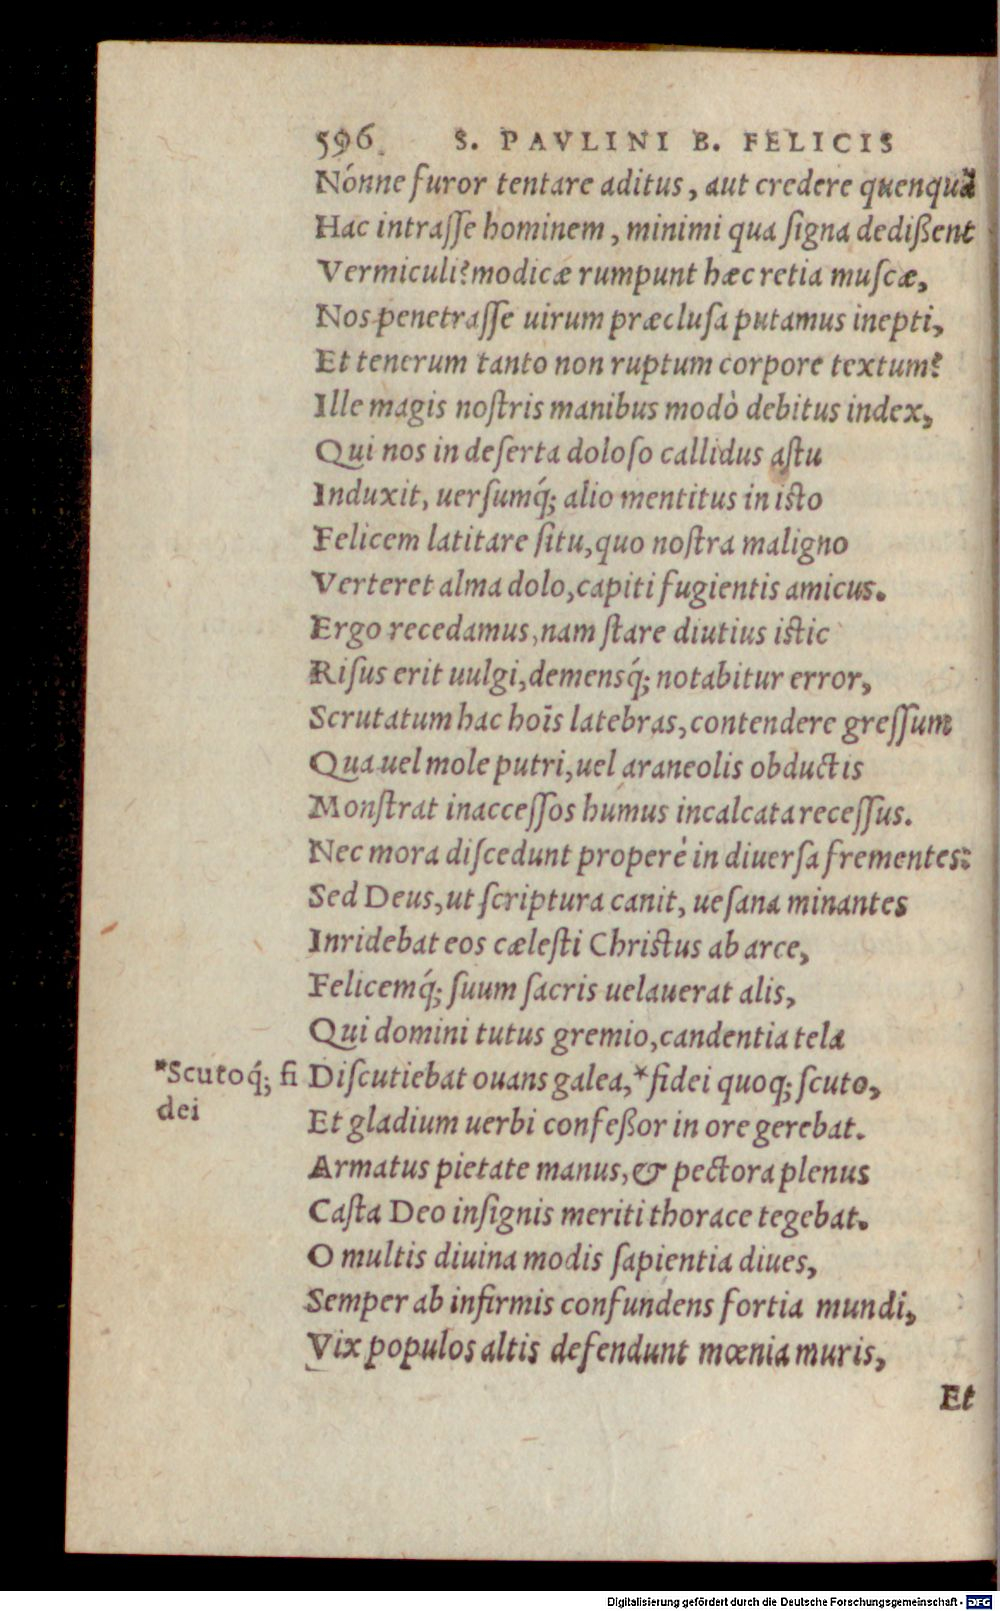 596 S. PAVLINI B. FELICIS
Nónne furor tentare aditus, aut credere quenquã
Hac intraſſe hominem, minimi qua ſigna dedißent
Vermiculi? modicæ rumpunt hæc retia muſcæ,
Nos penetraſſe uirum præcluſa putamus inepti,
Et tenerum tanto non ruptum corpore textum?
Ille magis noſtris manibus modò debitus index,
Qui nos in deſerta doloſo callidus aſtu
Induxit, uerſumq́; alio mentitus in isto
Felicem latitare ſitu, quo noſtra maligno
Verteret alma dolo, capiti fugientis amicus.
Ergo recedamus, nam ſtare diutius istic
Riſus erit uulgi, demensq́; notabitur error,
Scrutatum hac hoīs latebras, contendere greſſum
Qua uel mole putri, uel araneolis obductis
Monſtrat inacceſſos humus incalcata receſſus.
Nec mora diſcedunt properè in diuerſa frementes:
Sed Deus, ut ſcriptura canit, ueſana minantes
Inridebat eos cæleſti Christus ab arce,
Felicemq́; ſuum ſacris uelauerat alis,
Qui domini tutus gremio, candentia tela
*Scutoq́; fi Diſcutiebat ouans galea, *fidei quoq; ſcuto,
dei
Et gladium uerbi confeßor in ore gerebat.
Armatus pietate manus, & pectora plenus
Caſta Deo inſignis meriti thorace tegebat.
O multis diuina modis ſapientia diues,
Semper ab infirmis confundens fortia mundi,
Vix populos altis defendunt mœnia muris,
Et
Digitalisierung gefördert durch die Deutsche Forschungsgemeinschaft - DFG